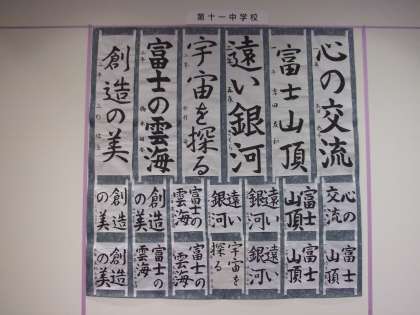 第十一中学校
心の交流
富士山頂
遠い銀河
宇宙を探る
富士の雲海
創造の美
心の
交流
富士
山頂
遠い
銀河
遠い
銀河
富士の
雲海
創造
の美
創造
の美
富士
山頂
富士
山頂
遠い
銀河
宇宙を
探る
富士の
雲海
富士の
雲海
創造
の美